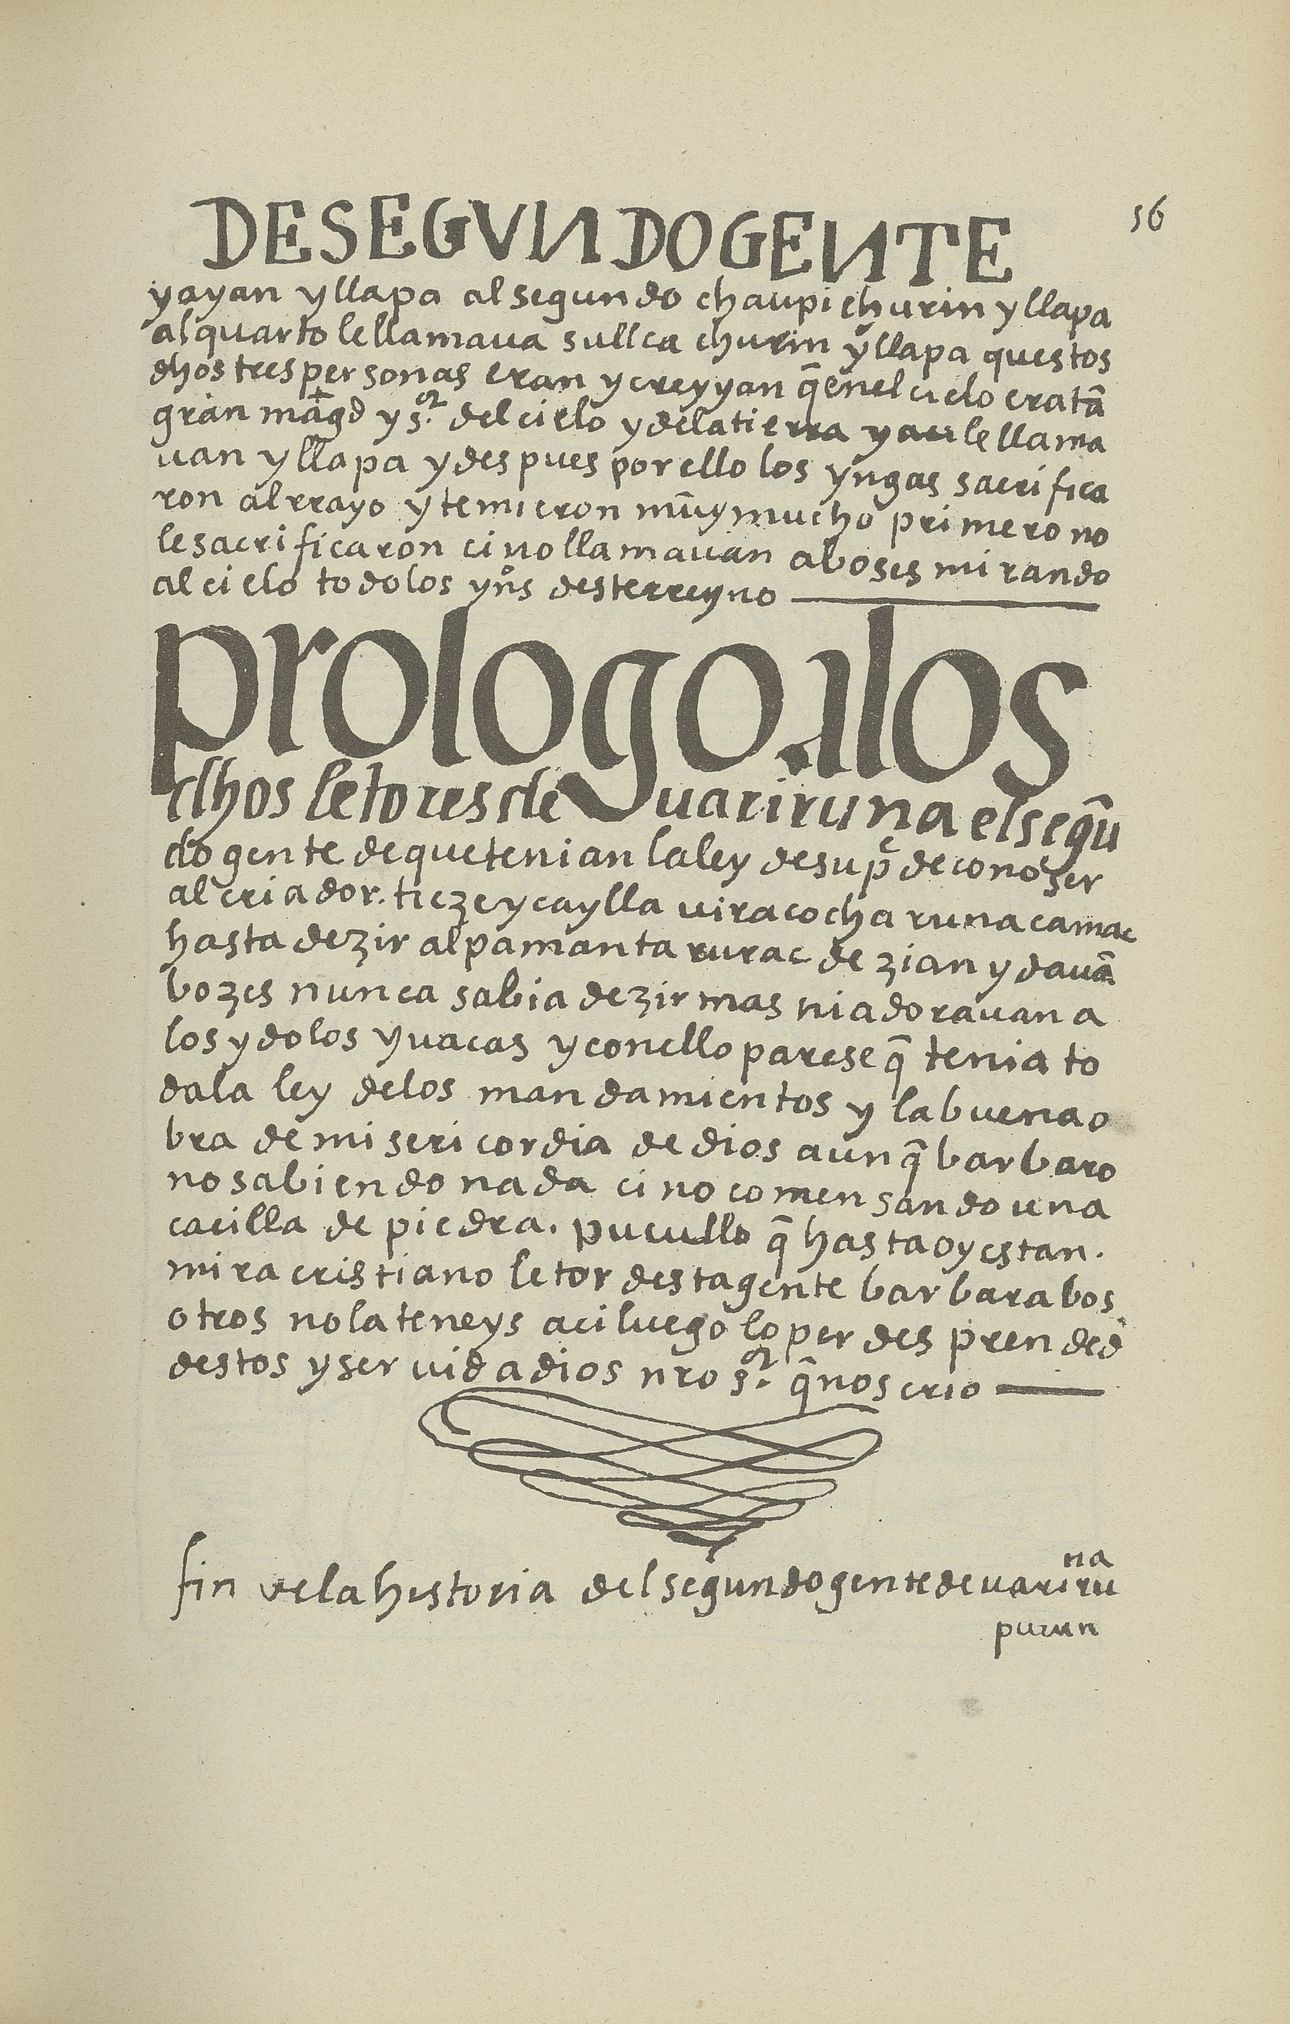 DESEGVNDOGENTE
56
yayan yllapa al segundo chaupi churin yllapa
alquarto le llamaua sullca churin yllapa questos
dhos tres personas eran y creyyan q̄ en el cielo era tā
gran mag.d y s.or del cielo y dela tierra y aci le llama
uan yllapa y despues por ello los yngas sacrifica
ron al rrayo y temieron mūy mucho primero no
le sacrificaron cino llamauan a boses mirando
al cielo todo los yn̊s deste rreyno
prologo a los
dhos letores de uari runa el segū
do gente de que tenian la ley de su p.e de conoser
al criador. ticze y caylla uiracocha runa camac
hasta dezir alpamanta rurac dezian y dauā
bozes nunca sabia dezir mas ni adorauan a
los ydolos y uacas y con ello parese q̄ tenia to
da la ley de los mandamientos y la buena o
bra de misericordia de dios aunq̄ barbaro
no sabiendo nada cino comensando una
cacilla de piedra. pucullo q̄ hasta oy estan.
mira cristiano letor desta gente barbara bos
otros no la teneys aci luego lo perdes prended
destos y seruid a dios nro s.or q̄ nos crio
fin de la historia del segundo gente de uari ru
na
purun